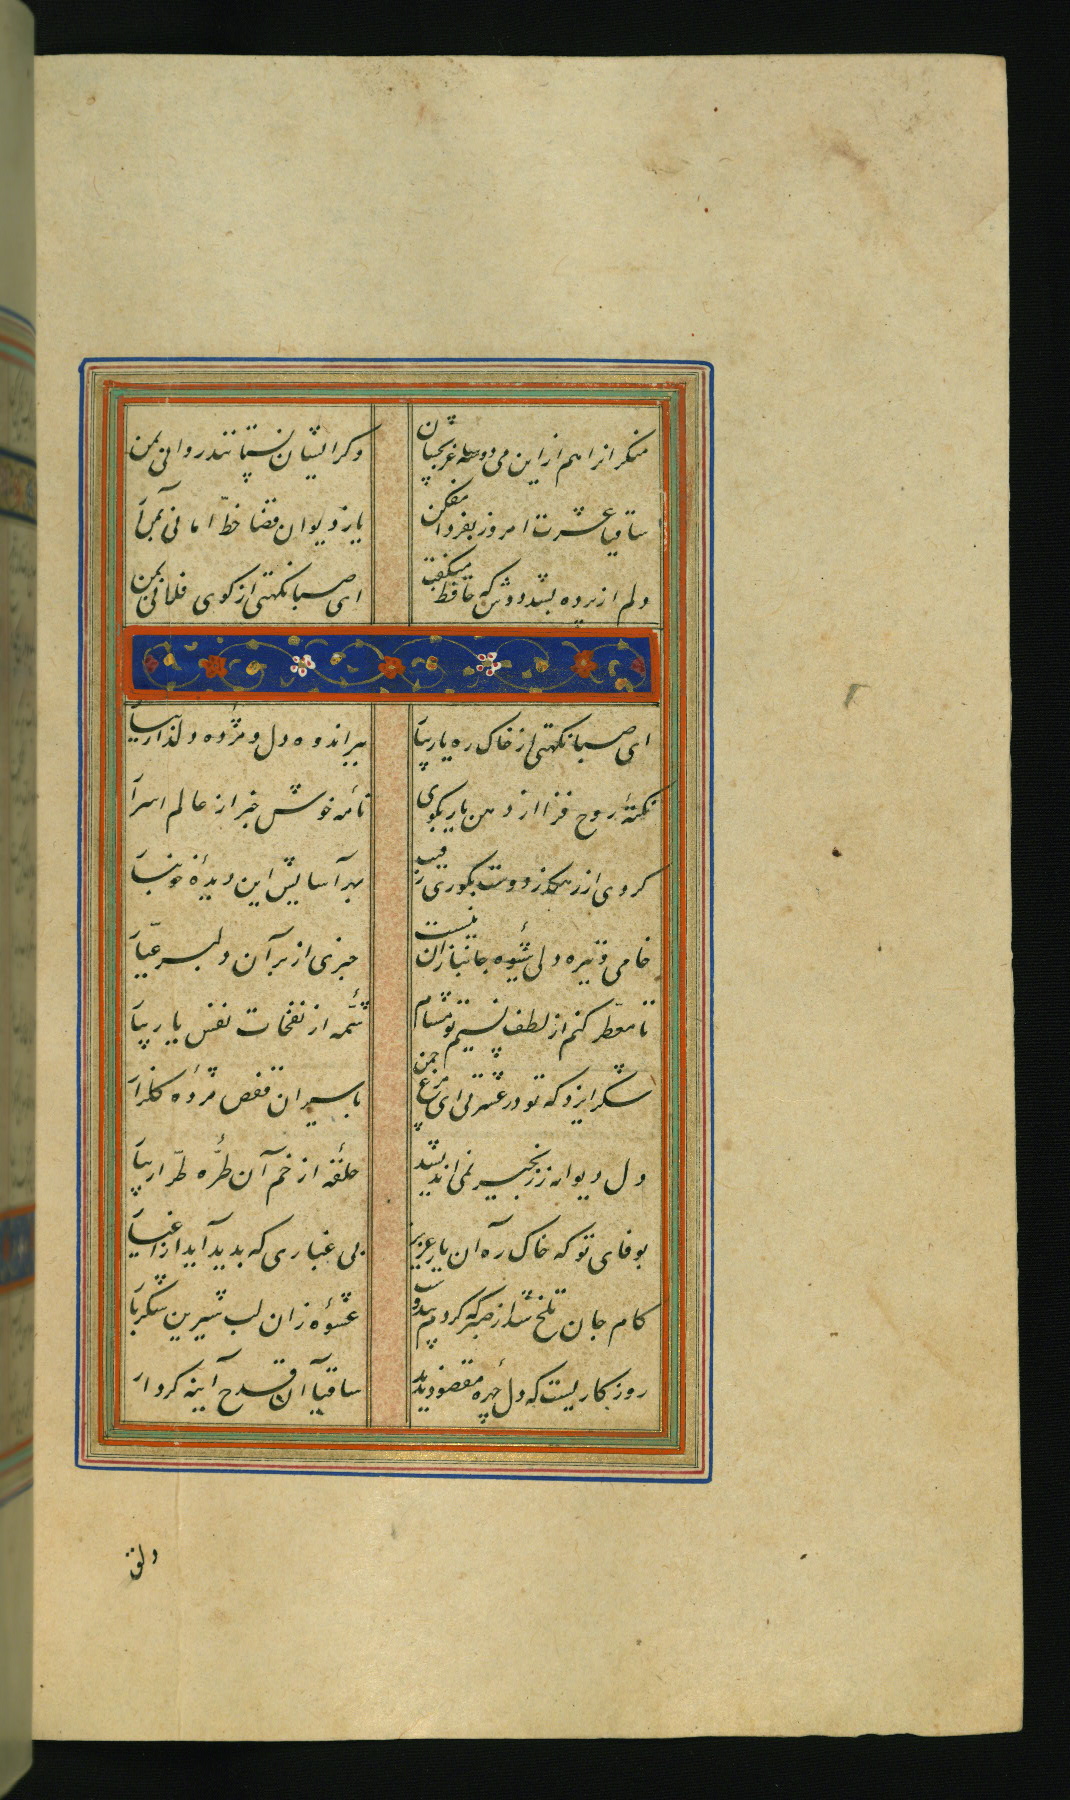 منکرانرا هم ازین می دو سه ساغر بچشان وکر ایشان نستانند روانی بمن آر
ساقیا عشرت امروز بفردا مفکن یا ز دیوان قضا خط امانی بمن آر
دلم از پرده بشد دوش که حافظ میکفت ای صبا نکهتی از کوی فلانی بمن آر
ای صبا نکهتی از خاک ره یار بیار ببر اندوه دل و مژده دلدار بیار
نکتهٔ روح فزا از دهن یار بکوی نامه خوش خبر از عالم اسرار بیار
کردی از رهکذر دوست بکوری رقیب بهر آسایش این دیدهٔ خونبار بیار
خامی و تیره دلی شیوه جانبازان نیست خبری از بر آن دلبر عیار بیار
تا معطر کنم از لطف نسیم تو مشام شمه از نفحات نفس یار بیار
شکر ایزد که تو در عشرتی ای مرغ چمن باسیران قفص مژده کلزار بیار
دل دیوانه ز زنجیر نمی اندیشد حلقه از خم آن طره طرار بیار
بوفای تو که خاک ره آن یار عزیز بی غباری که بدید آید از اغیار بیار
کام جان تلخ شد از صبر که کردیم بیدوست عشوه زان لب شیرین شکربار بیار
روزکاریست که دل چهره مقصود ندید ساقیا آن قدح آینه کردار
دلق